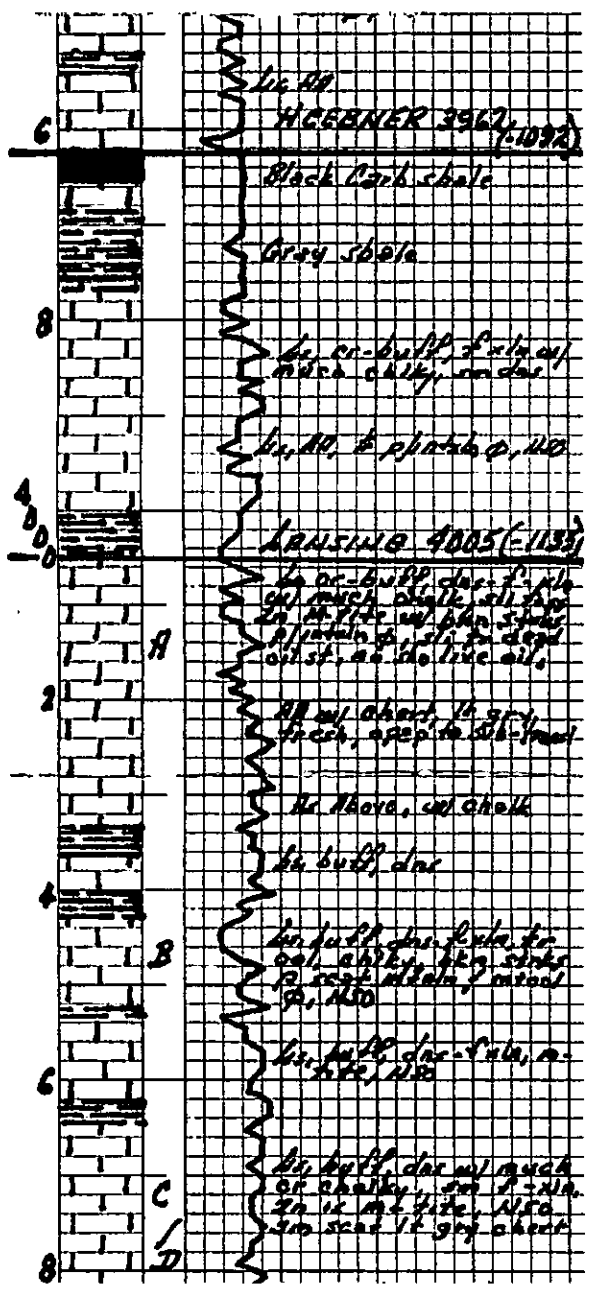 Ls, AA
HEEBNER 3962 (-1092)
6
Black Carb shale
Gray shale
8
Ls, cr-buff, f xln w/
much chalky, sm dns
Ls, AA, p intxln φ, NSO
4000
LANSING 4005 (-1135)
Ls cr-buff, dns-f-xln
w/ much chalk, sli foss
Zn M-tite w/ pkn stnks
p intxln φ, sli tr dead
oil st, no sho live oil,
A
2
AA w/ chert, lt gry,
fresh, opap to sub-trans
As Above, w/ chalk
Ls buff, dns
4
Ls, buff, dns-f-xln, tr
ool, chalky, bkn stnks
p scat intxln / intool
φ, NSO
B
Ls, buff, dns-f xln, m-
tite, NSO
6
Ls, buff, dns w/ much
cr chalky, sm f-xln,
Zn is m-tite, NSO
Sm scat lt gry chert
C/D
8